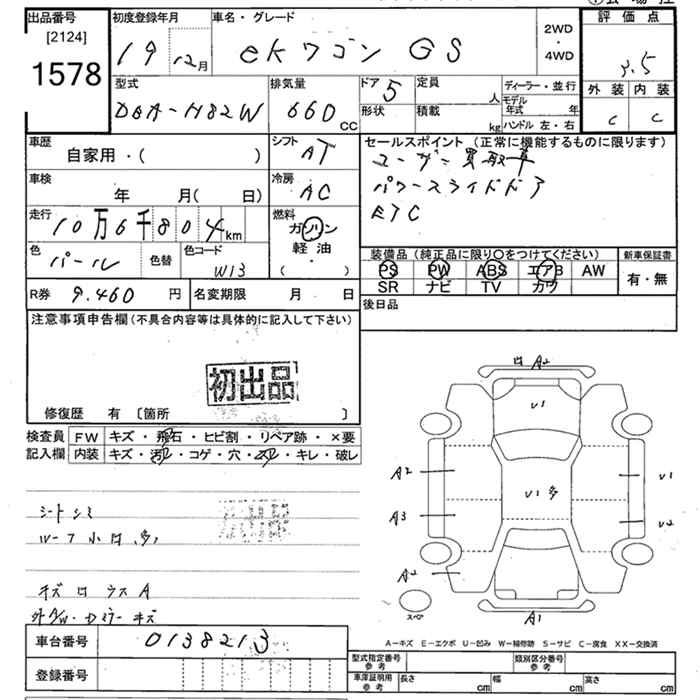 出品番号 初度登録年月 車名・グレード 評価点
[2124]
1578
19 12月 eKワゴン GS 2WD・4WD 3.5
型式 排気量 ドア 定員 ディーラー・並行 外装 内装
DBA-H82W 660 CC 5 人 モデル年式 年 C C
形状 積載 kg ハンドル 左・右
車歴 シフト セールスポイント (正常に機能するものに限ります)
自家用・( ) AT ユーザー買取車
車検 冷房 パワースライドドア
年 月(日) AC ETC
走行 燃料
10万6千804km ガソリン
色 色替 色コード 軽油
パール W13 ・( )
装備品 (純品正に限り○をつけてください) 新車保証書
PS PW ABS エアB AW 有・無
SR ナビ TV カワ
R券 9.460円 名変期限 月 日 後日品
注意事項申告欄(不具合内容等は具体的に記入して下さい)
初出品
修復歴 有 [箇所 ]
検査員 FW キズ・飛石・ヒビ割・リペア跡・×要
記入欄 内装 キズ・汚レ・コゲ・穴・スレ・キレ・破レ
シートシミ
ルーフ小凹多
A2
U1
U1多
A2
A3
A2
U1
U2
A1
スペア
A-キズ E-エクボ U-凹み W-補修跡 S-サビ C-腐食 XX-交換済
車台番号 0138213
登録番号
型式指定番号 参考 類別区分番号 参考
車庫証明用 参考 長さ cm 幅 cm 高さ cm